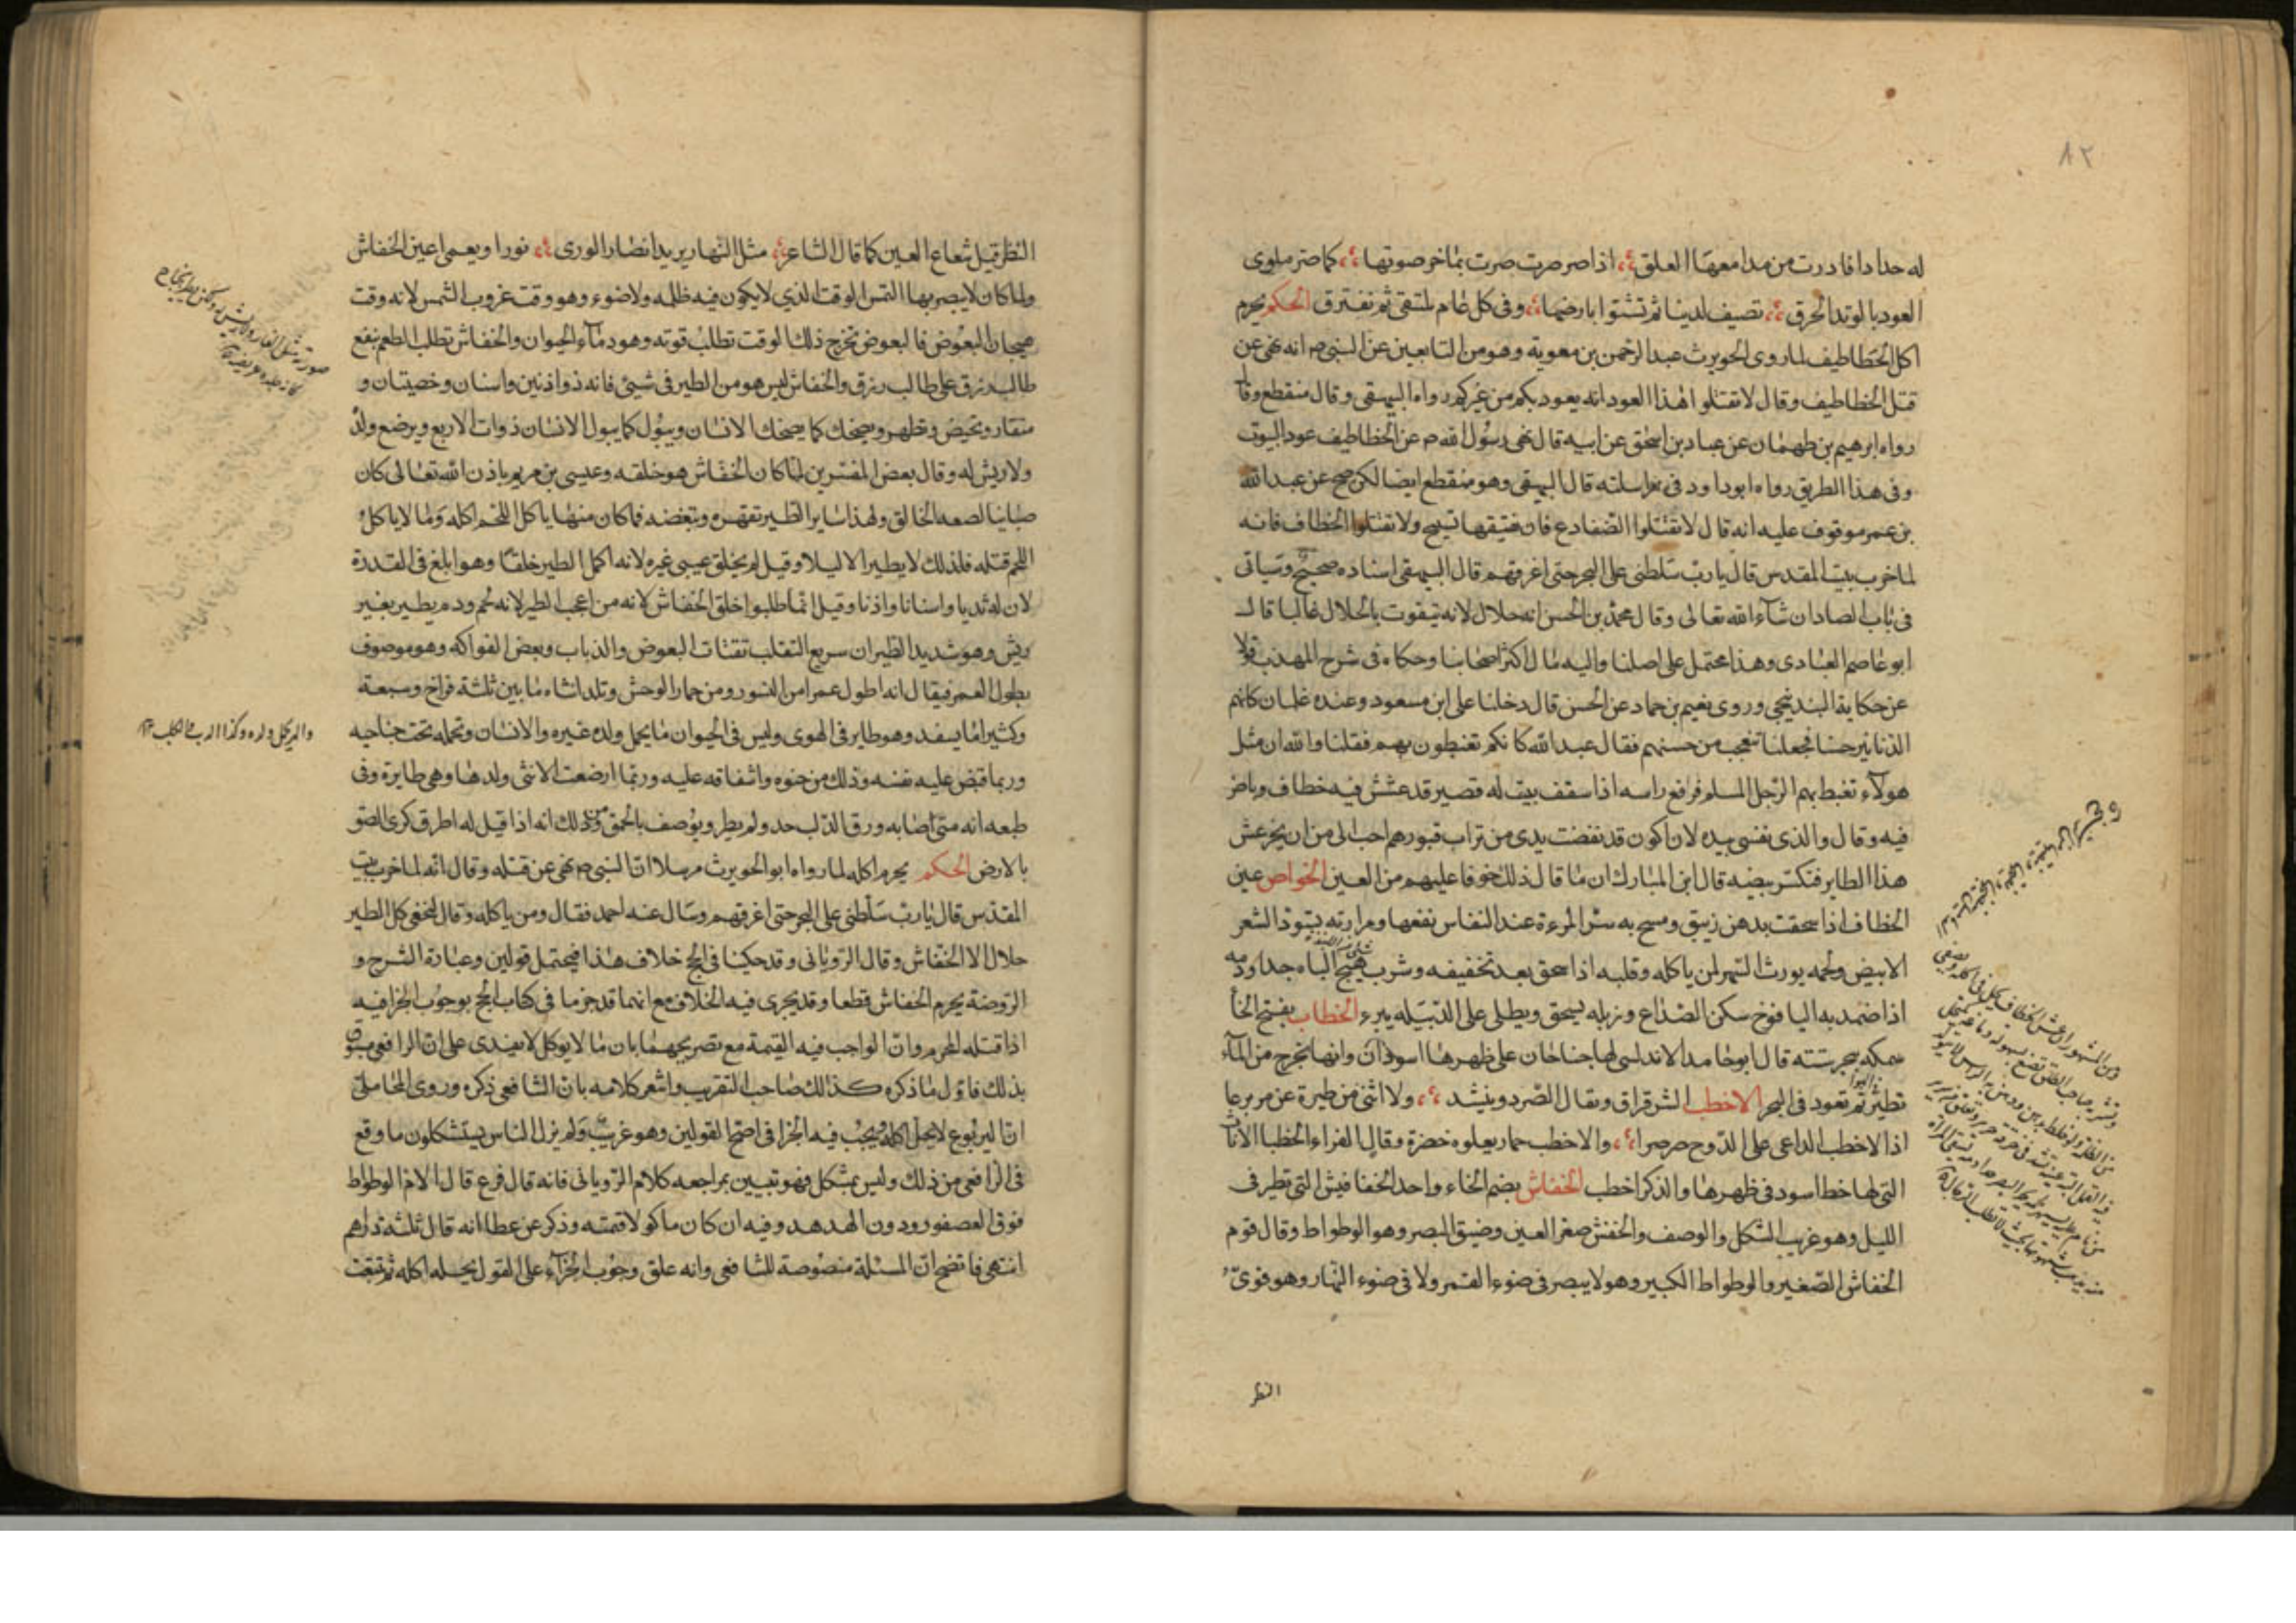 ٨٢
له حدادا فادرت من مدامعها العلق ؛ اذا صرصرت صرت بماخر صوتها ؛ كما صر ملوى
العود بالوتد الحرق ؛ تصيف لدينا ثم تشتوا بارضها ؛ وفى كل عام نلتقى ثم نفترق الحكم يحرم
اكل الخطاطيف لما روى الحويرث عبد الرحمن بن معوية وهو من التابعين عن النبى م انه نهى عن
قتل الخطاطيف وقال لا تقتلوا هذا العود انه يعود بكم من غيركم رواه البيهقى وقال منقطع وقال
رواه ابرهيم بن طهمان عن عباد بن اسحق عن ابيه قال نهى رسول الله م عن الخطاطيف عود البيوت
وفى هذا الطريق رواه ابو داود فى مراسلته قال البيهقى وهو منقطع ايضا لكن صح عن عبد الله
بن عمر موقوف عليه انه قال لا تقتلوا الضفادع فان نقيقها تسبيح ولا تقتلوا الخطاف فانه
لما خرب بيت المقدس قال يا رب سلطنى على البحر حتى اغرقهم قال البيهقى اسناده صحيح وسياتى
فى باب الصاد ان شآء الله تعالى وقال محمد بن الحسن انه حلال لانه يتقوت بالحلال غالبا قال
ابو عاصم العبادى وهذا محتمل على اصلنا واليه مال اكثر اصحابنا وحكاه فى شرح المهذب قولا
عن حكاية البندنيجى وروى نعيم بن حماد عن الحسن قال دخلنا على ابن مسعود وعنده غلمان كانهم
الدنانير حسنا فجعلنا نتعجب من حسنهم فقال عبد الله كانكم تغبطون بهم فقلنا والله ان مثل
هولآء تغبط بهم الرجل المسلم فرافع راسه اذا سقف بيت له قصير قد عشش فيه خطاف وباض
فيه وقال والذى نفسى بيده لان اكون قد نفضت يدى من تراب قبورهم احب الى من ان يخر عش
هذا الطاير فتكسر بيضه قال ابن المبارك ان ما قال ذلك خوفا عليهم من العين الخواص عين
الخطاف اذا سحقت بدهن زيبق ومسح به سر المرءة عند النفاس نفعها ومرارته يسود الشعر
الابيض ولحمه يورث السهر لمن ياكله وقلبه اذا سحق بعد تخفيفه وشرب هيج الباه جدا ودمه
اذا ضمد به اليافوخ سكن الصداع وزبله يسحق ويطلى على الدبيلة يبرء الخطاب بفتح الخا
سمكه ببحر سبتة قال ابو حامد الاندلسى لها جناحان على ظهرها اسودان وانها تخرج من المآء
تطير ثم تعود فى البحر الاخطب الشرقراق ويقال الصرد وينشد ؛ ولا انثنى من طيرة عن مريرعا
اذا الاخطب الداعى على الدوح صرصرا ؛ والاخطب حمار يعلوه خضرة وقال الفراء الخطبا الاتان
التى لها خط اسود فى ظهرها والذكر اخطب الخفاش بضم الخاء واحد الخفافيش التى تطير فى
الليل وهو غريب الشكل والوصف والخفش صغر العين وضيق البصر وهو الوطواط وقال قوم
الخفاش الصغير والوطواط الكبير وهو لا يبصر فى ضوء القمر ولا فى ضوء النهار وهو قوى
النظر
النظر قيل شعاع العين كما قال الشاعر ؛ مثل النهار يريد انصار الورى ؛ نورا ويعمى اعين الخفاش
ولما كان لا يبصر بها التمس الوقت الذي لا يكون فيه ظلمه ولا ضوء وهو وقت غروب الشمس لانه وقت
هيجان البعوض فالبعوض تخرج ذلك الوقت تطلب قوته وهو دمآء الحيوان والخفاش تطلب الطعم بقع
طالب رزق على طالب رزق والخفاش ليس هو من الطير فى شيئ فانه ذو اذنين واسنان وخصيتان و
منقار وتحيض وتطهر ويضحك كما يضحك الانسان ويبول كما يبول الانسان ذوات الاربع ويرضع ولد
ولا ريش له وقال بعض المفسرين لما كان الخفاش هو خلقه وعيسى بن مريم باذن الله تعالى كان
مباينا لصنعه الخالق ولهذا ساير الطير تقهره وتبغضه فما كان منها ياكل اللحم اكله وما لا ياكل
اللحم قتله فلذلك لا يطير الا ليلا وقيل لم يخلق عيسى غيره لانه اكمل الطير خلقا وهو ابلغ فى القدرة
لان له ثديا واسنانا واذنا وقيل انما طلبوا خلق الخفاش لانه من اعجب الطير لانه لحم ودم يطير بغير
ريش وهو شديد الطيران سريع التقلب تقتات البعوض والذباب وبعض الفواكه وهو موصوف
بطول العمر فيقال انه اطول عمرا من النسور ومن حمار الوحش وتلد انثاه ما بين ثلثة فراخ وسبعة
وكثيرا ما يسفد وهو طاير فى الهوى وليس فى الحيوان ما يحمل ولده غيره والانسان وتحمله تحت جناحيه
وربما قبض عليه بفيه وذلك من حنوه واشفاقه عليه وربما ارضعت الانثى ولدها وهى طايرة وفى
طبعه انه متى اصابه ورق الدلب حد ولم يطر ويوصف بالحمق ومن ذلك انه اذا قيل له اطرق كرى الصق
بالارض الحكم يحرم اكله لما رواه ابو الحويرث مرسلا ان النبى م نهى عن قتله وقال انه لما خرب بيت
المقدس قال يا رب سلطنى على البحر حتى اغرقهم وسال عنه احمد فقال ومن ياكله وقال النخعى كل الطير
حلال الا الخفاش وقال الرويانى وقد حكينا فى الحج خلاف هذا فيحتمل قولين وعبارة الشرح و
الروضة يحرم الخفاش قطعا وقد يجرى فيه الخلاف مع انهما قد جزما فى كتاب الحج بوجوب الجزا فيه
اذا قتله المحرم وان الواجب فيه القيمة مع تصريحهما بان ما لا يوكل لا يفيدى على ان الرافعى مسبوق
بذلك فاول ما ذكره كذلك صاحب التقريب واشعر كلامه بان الشافعى ذكره وروى المحاملى
ان اليربوع لا يحل اكله ويجب فيه الجزا فى اصح القولين وهو غريب ولم يزل الناس يستشكلون ما وقع
فى الرافعى من ذلك وليس بمشكل فهو تبيين بمراجعه كلام الرويانى فانه قال فرع قال الام الوطواط
فوق العصفور ودون الهدهد وفيه ان كان ماكولا قيمته وذكر عن عطا انه قال ثلثة دراهم
انتهى فاتضح ان المسئلة منصوصة للشافعى وانه علق وجوب الجزآء على القول بحله اكله ثم تتبعت